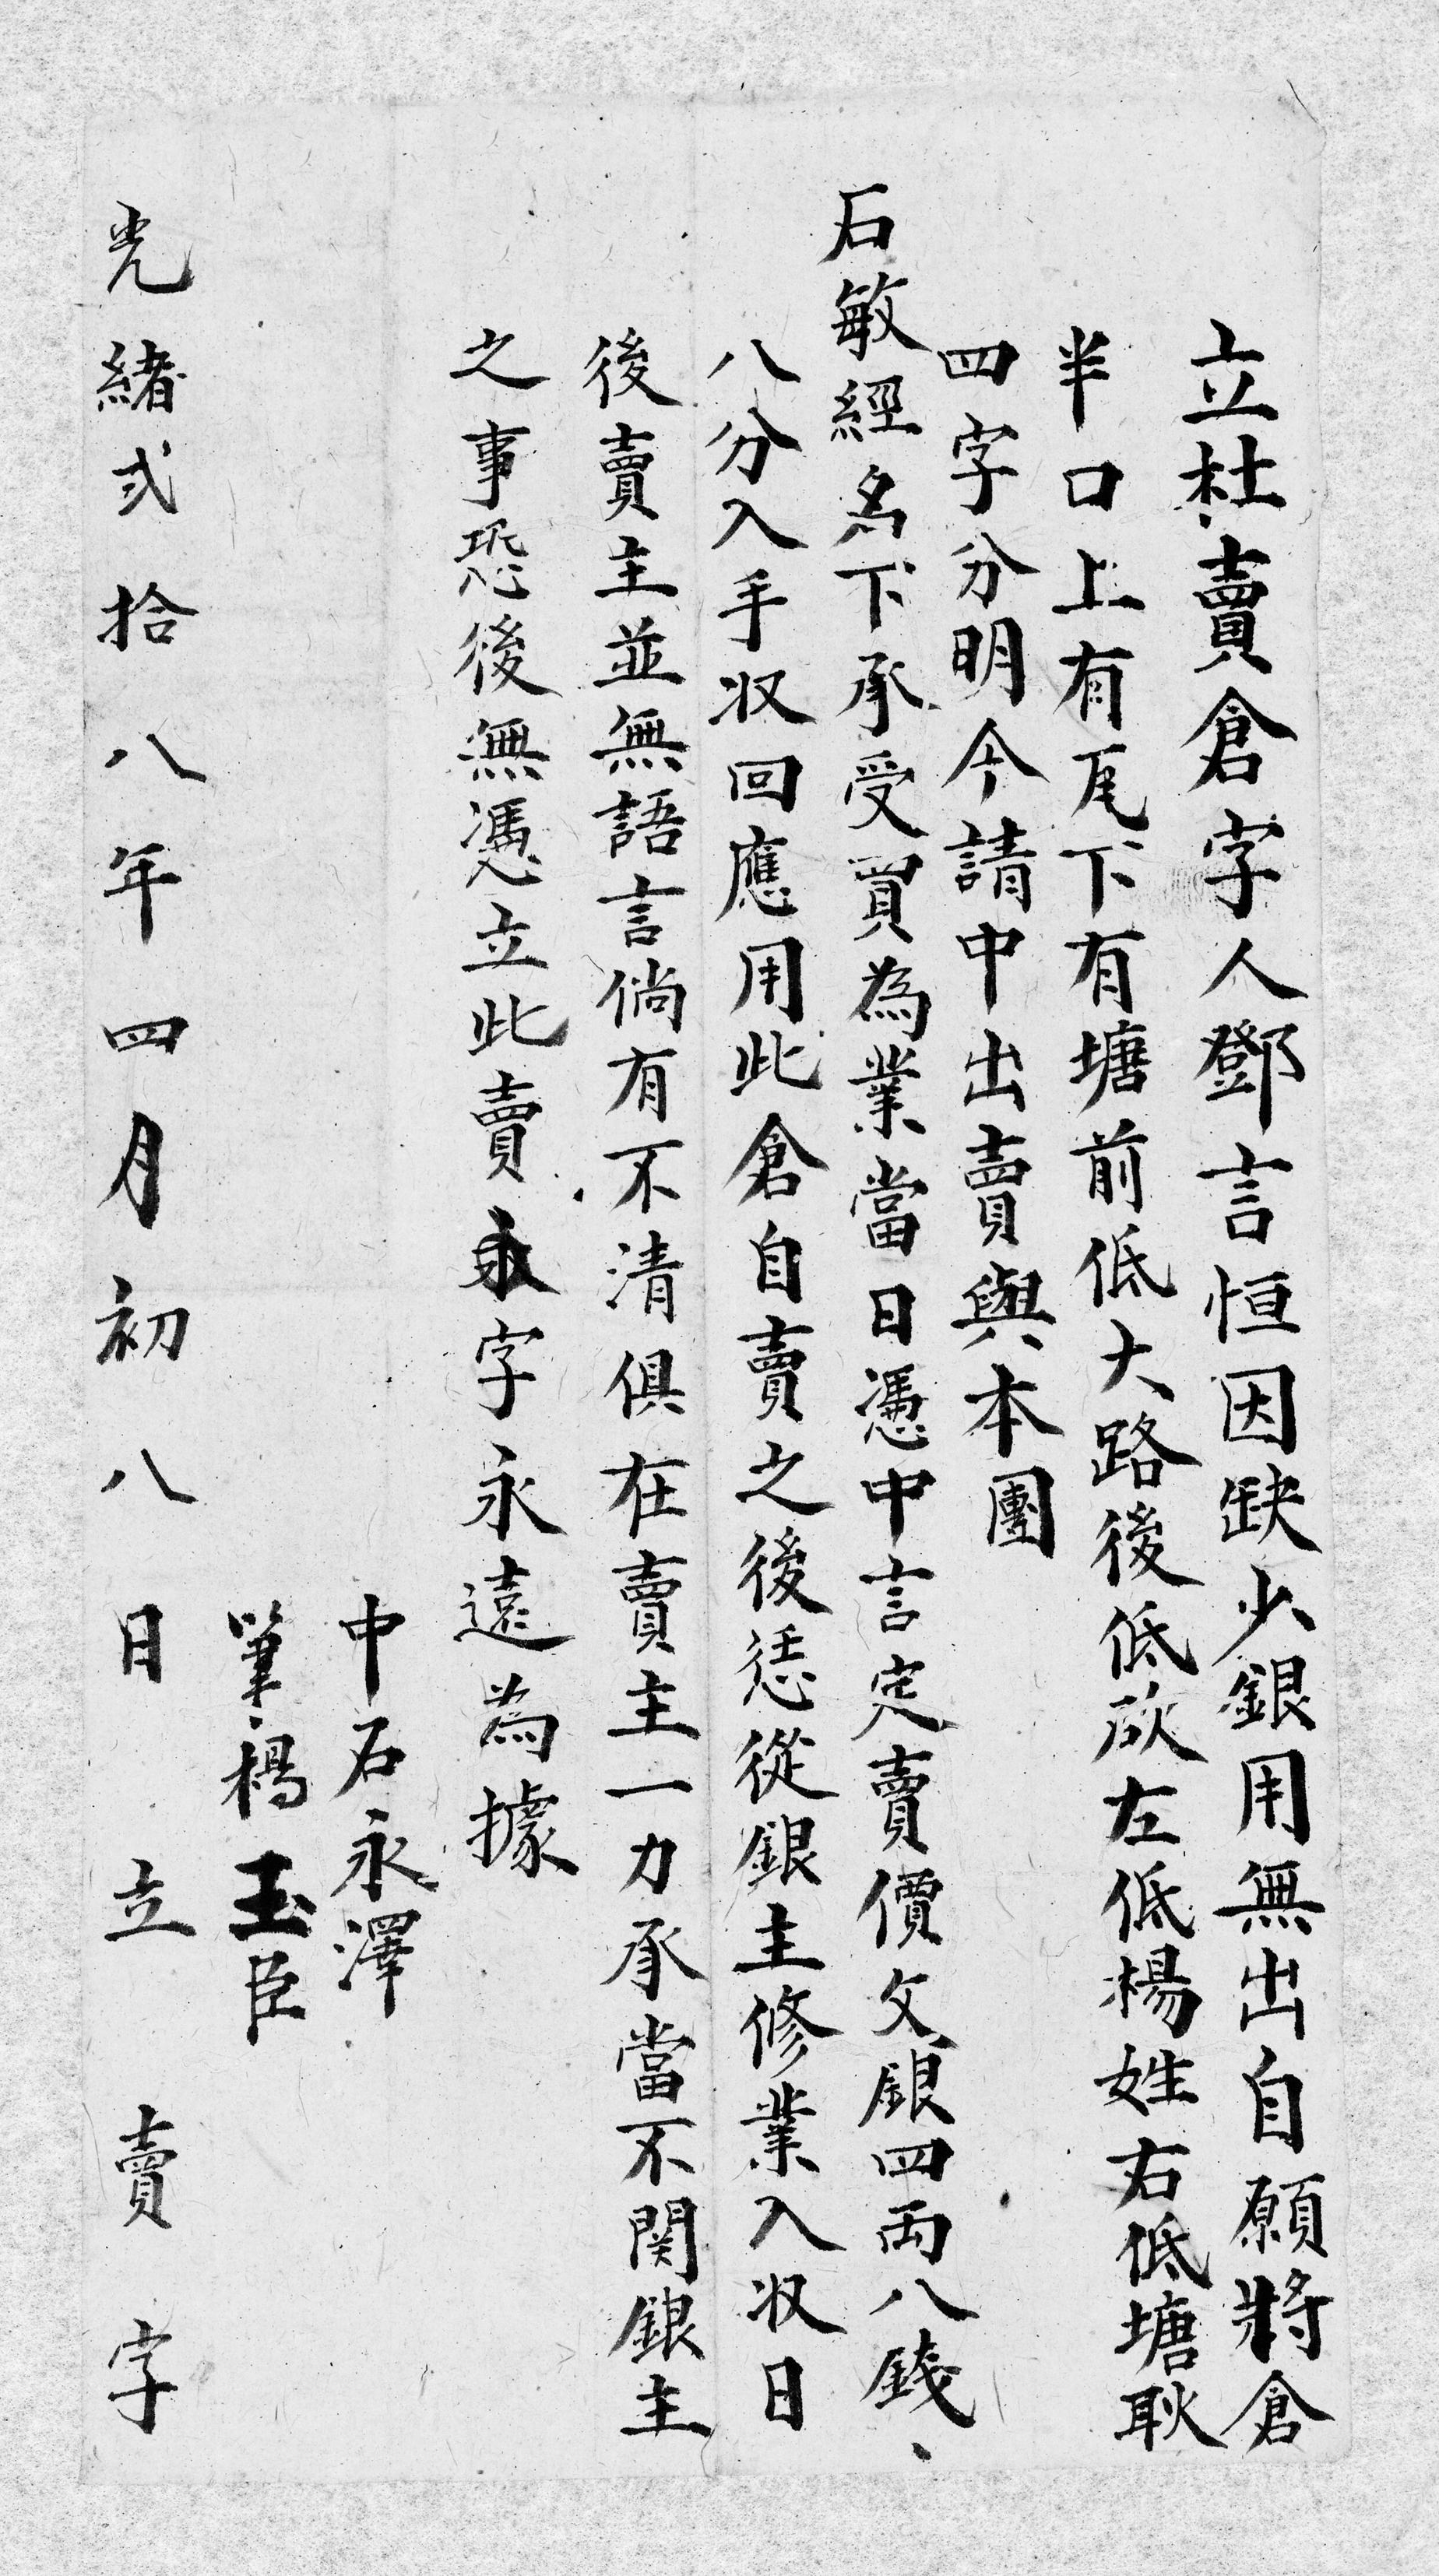 立杜賣倉字人鄧言恒因缺少銀用無出自願將倉
半口上有瓦下有塘前低大路後低砍左低楊姓右低塘耿
四字分明今請中出賣與本團
石敏經名下承受買為業當日憑中言定賣價文銀四両八錢
八分入手収回應用此倉自賣之後恁從銀主修業入収日
後賣主並無語言倘有不清俱在賣主一力承當不関銀主
之事恐後無憑立此賣永字永遠為據
中石永澤
筆楊玉臣
光緒弍拾八年四月初八日立賣字